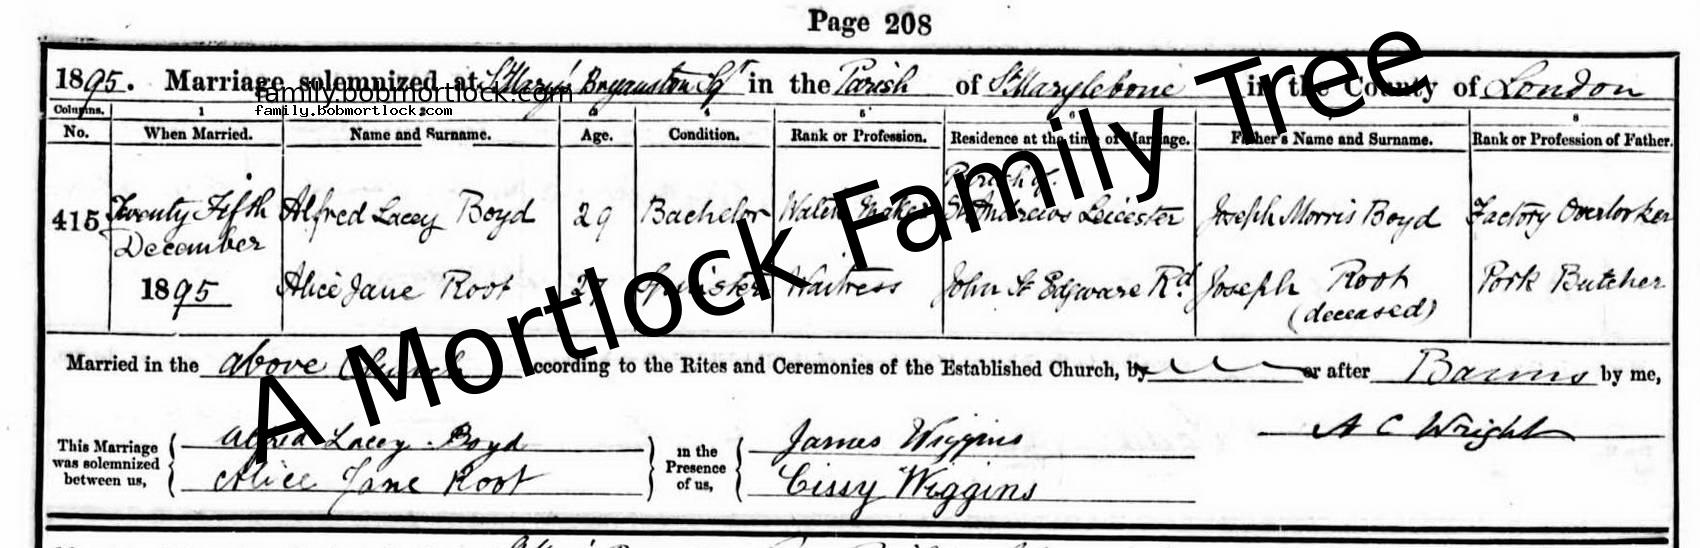 Page 208
1895. Marriage solemnized at St Mary's Bryanston Sqr in the Parish of St Marylebone in the County of London
family.bobmortlock.com
family.bobmortlock.com
Columns. 1 2 3 4 5 6 7 8
No. When Married. Name and Surname. Age. Condition. Rank or Profession. Residence at the time of Marriage. Father's Name and Surname. Rank or Profession of Father.
415 Twenty Fifth Alfred Lacey Boyd 29 Bachelor Maker Parish of St Andrews Leicester Joseph Morris Boyd Factory Overlooker
December
1895 Alice Jane Root 27 Spinster Waitress John St Edgware Rd. Joseph Root (deceased) Pork Butcher
Married in the above Church according to the Rites and Ceremonies of the Established Church, by or after Banns by me,
A C Wright
This Marriage was solemnized between us, Alfred Lacey Boyd
Alice Jane Root
in the Presence of us, James Wiggins
Cissy Wiggins
A Mortlock Family Tree